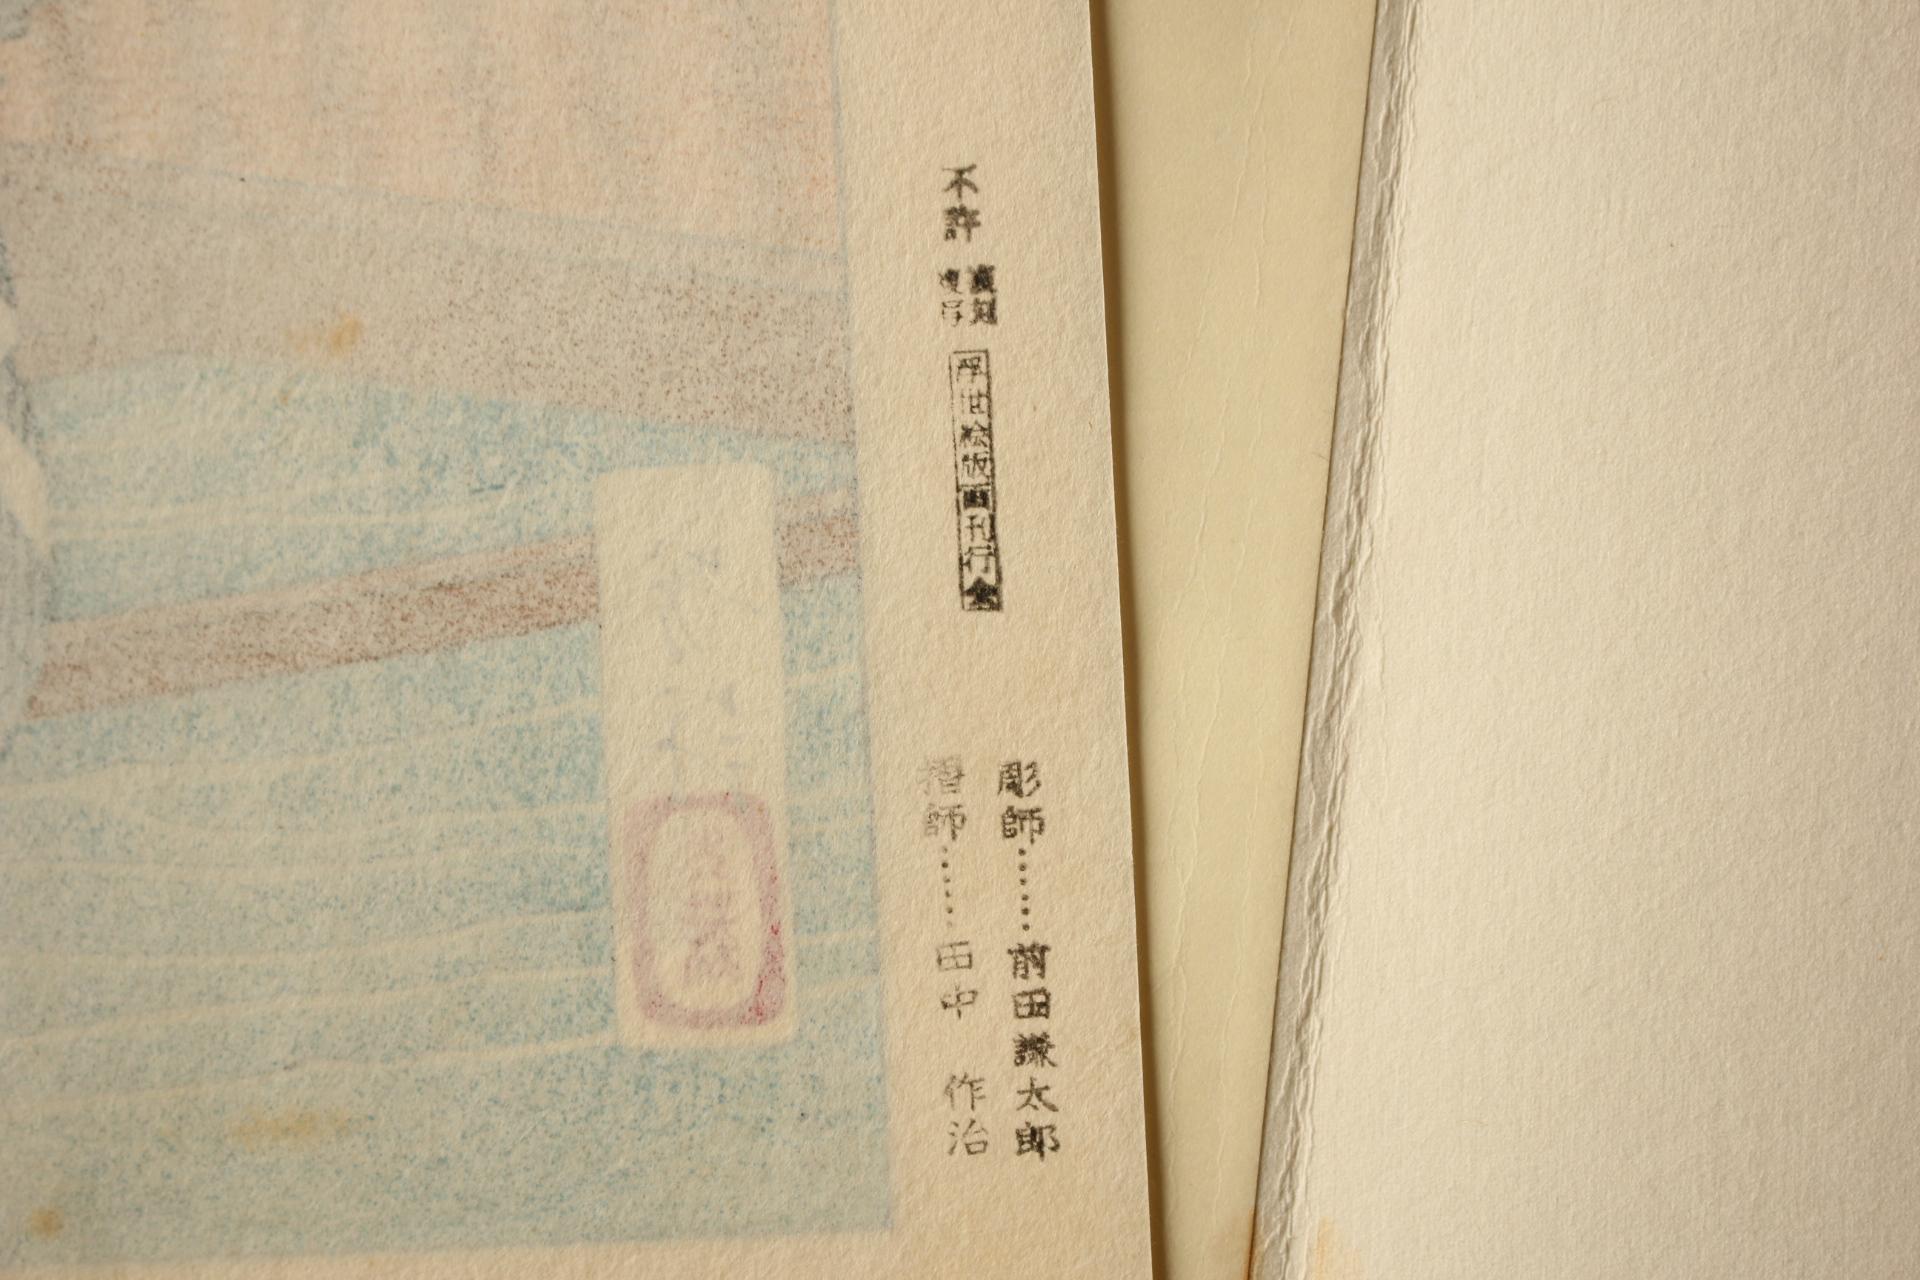 不許
複刻
複写
浮世絵版画刊行会
彫師……前田謙太郎
摺師……田中 作治